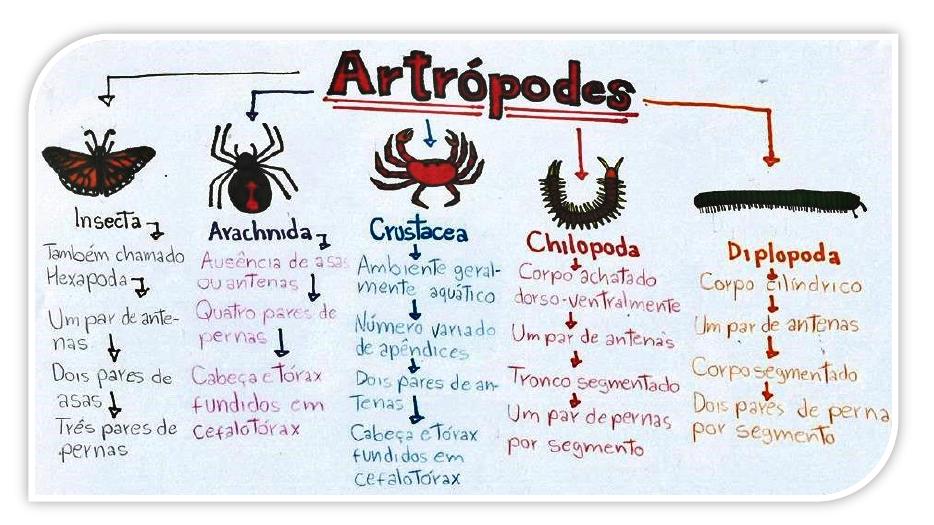 Artrópodes
Insecta
Também chamado
Hexapoda
Um par de ante-
nas
Dois pares de
asas
Três pares de
pernas
Arachnida
Ausência de asas
ou antenas
Quatro pares de
pernas
Cabeça e Tórax
fundidos em
cefaloTórax
Crustacea
Ambiente geral-
mente aquático
Número variado
de apêndices
Dois pares de an-
Tenas
Cabeça e Tórax
fundidos em
cefaloTórax
Chilopoda
Corpo achatado
dorso-ventralmente
Um par de antenas
Tronco segmentado
Um par de pernas
por segmento
Diplopoda
Corpo cilíndrico
Um par de antenas
Corpo segmentado
Dois pares de perna
por segmento